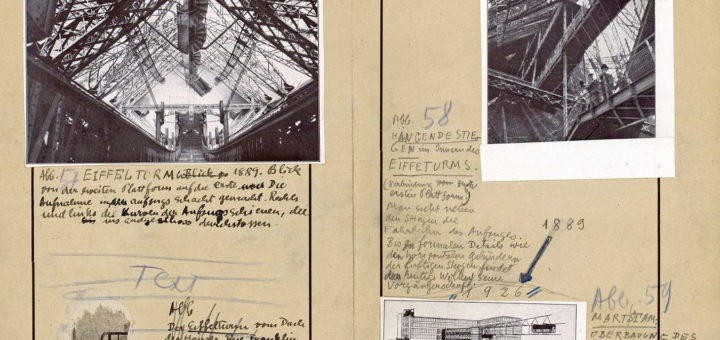 Abb. 57 EIFFELTORM Blick 1889. Blick
von der zweiten Plattform auf die erste Die
Aufnahme in den aufzugsschacht gemacht. Rechts
und links die Kurven der Aufzugsschienen, die
ins
Text
Abb
Der Eiffelturm vom Dach
Franklin
Abb. 58
HANGENDE STIE
GEN im Innern des
EIFFETURMS.
(Verbindung von
ersten Plattform)
Man sieht neben
den Stegen die
Fahrbahn des Aufzuges.
Bis in formalen Details wie
den horizontalen Geländern
der luftigen Stege findet
das heutige Wollen seine
Vorgängerschaft.
1889
"1926"
Abb. 59
MART STAM:
ÜBERBAUUNG DES